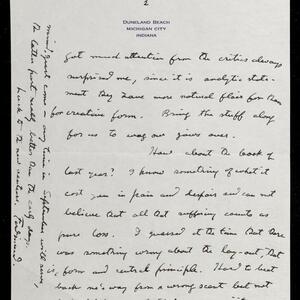 2
DUNELAND BEACH
MICHIGAN CITY
INDIANA
got much attention from the critics always
surprised me, since it is analytic state-
ment they have more natural flair for than
for creative form. Bring the stuff along
for us to wag our jaws over.
How about the book of
last year? I know something of what it
cost you in pain and despair and can not
believe that all that suffering counts as
pure loss. I guessed at the time that there
was something wrong about the lay-out, that
is, form and central principle. Hard to beat
back one's way from a wrong scent but not
must, guest come — any time in September will serve,
the latter part really better than the early days.
Luck to the new venture,
Ferdinand.